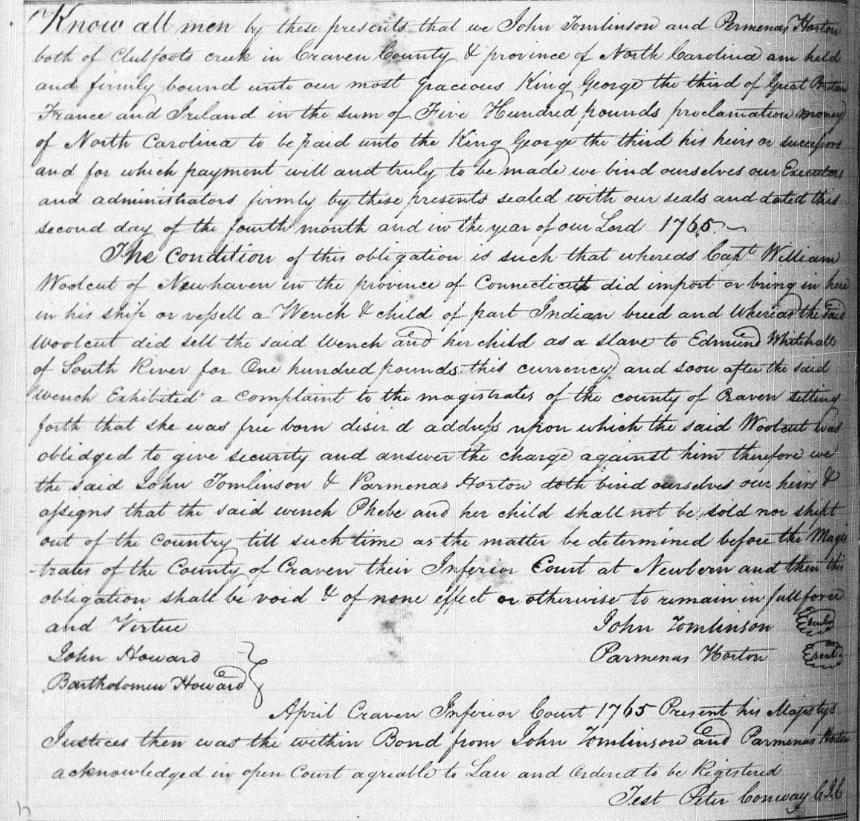 Know all men by these presents that we John Tomlinson and Permenas Horton
both of Clubfoots creek in Craven County & province of North Carolina am held
and firmly bound unto our most gracious King George the third of Great Britan
France and Ireland in the sum of Five Hundred pounds proclamation money
of North Carolina to be paid unto the King George the third his heirs or successors
and for which payment will and truly to be made we bind ourselves our Executors
and administrators firmly by these presents sealed with our seals and dated this
second day of the fourth month and in the year of our Lord 1765
The Condition of this obligation is such that whereas Capt William
Woolcut of Newhaven in the province of Connecticut did import or bring in here
in his ship or vessell a Wench & child of part Indian breed and whereas the said
Woolcut did sell the said Wench and her child as a slave to Edmund Whitehall
of South River for One hundred pounds this currency and soon after the said
wench Exhibited a complaint to the magistrates of the county of Craven setting
forth that she was free born disird address upon which the said Woolcut was
oblidged to give security and answer the charge against him therefore we
the said John Tomlinson & Parmenas Horton doth bind ourselves our heirs &
assigns that the said wench Phebe and her child shall not be sold nor shipt
out of the Country till such time as the matter be determined before the Magis
trates of the County of Craven their Inferior Court at Newbern and then this
obligation shall be void & of none effect or otherwise to remain in full force
and Virtue John Tomlinson seal
John Howard Parmenas Horton seal
Bartholomew Howard
April Craven Inferior Court 1765 Present his Majestys
Justices then was the within Bond from John Tomlinson and Parmenas Horton
acknowledged in open Court agreable to Law and Ordered to be Registered
Test Peter Conway C I C